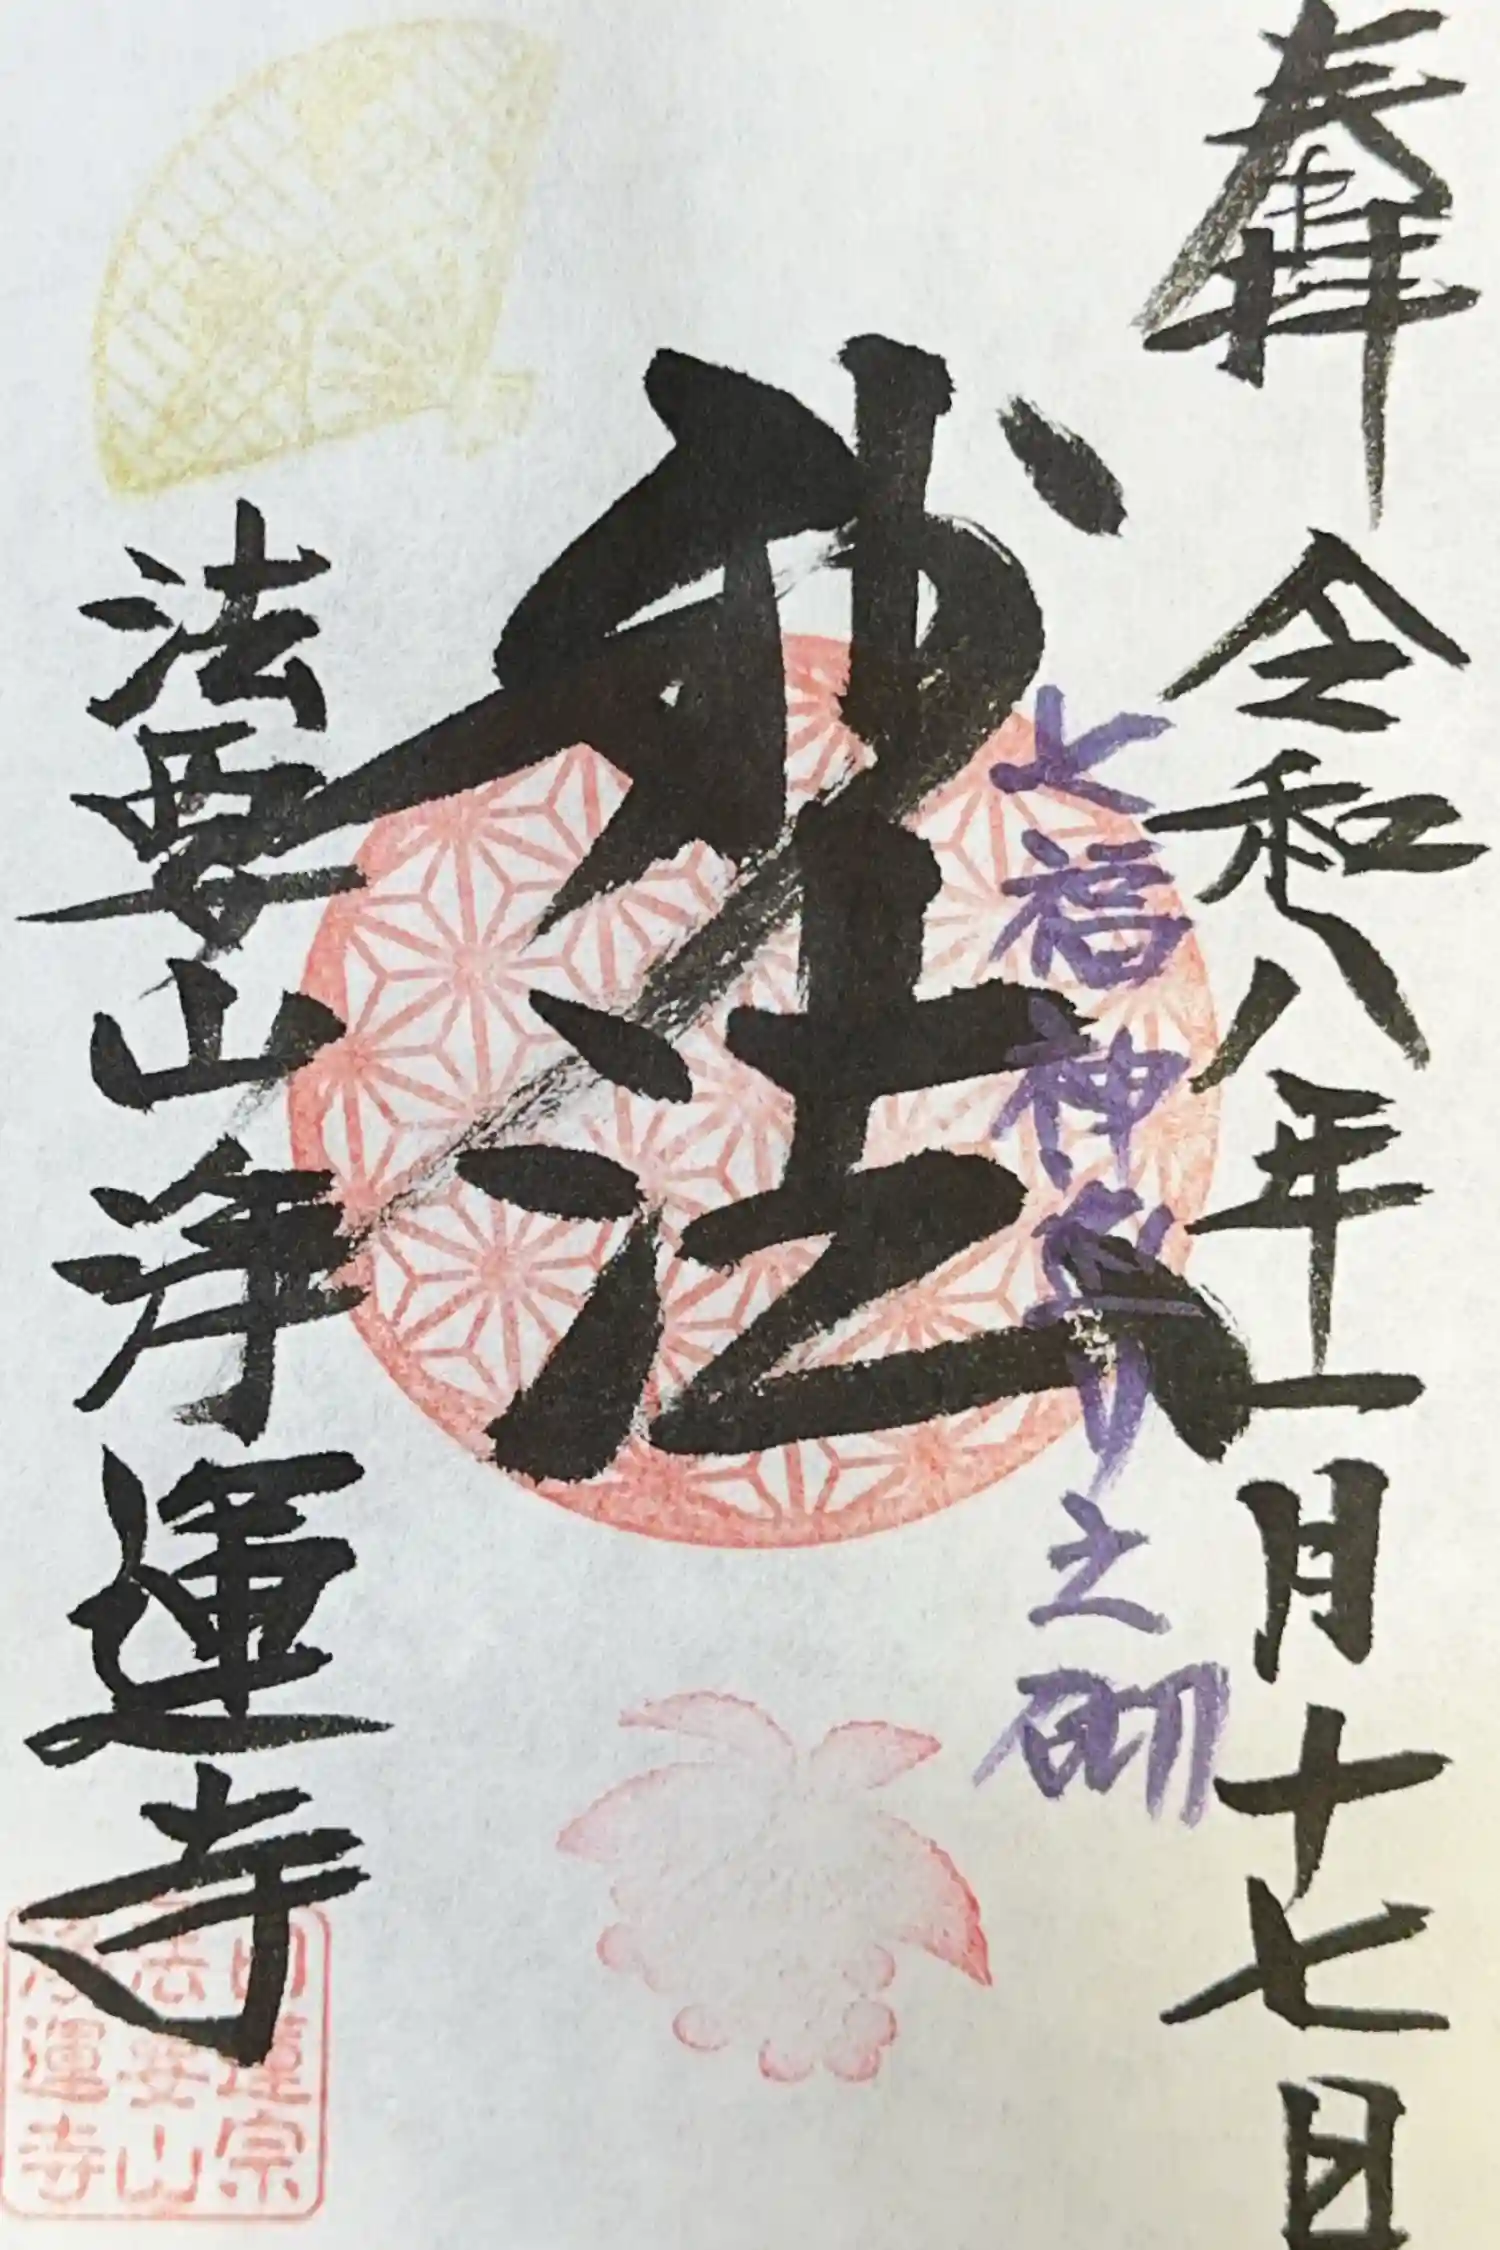 奉拝
令和八年一月十七日
七福神参り之砌
妙法
法要山浄運寺
日蓮宗
法要山
浄運寺